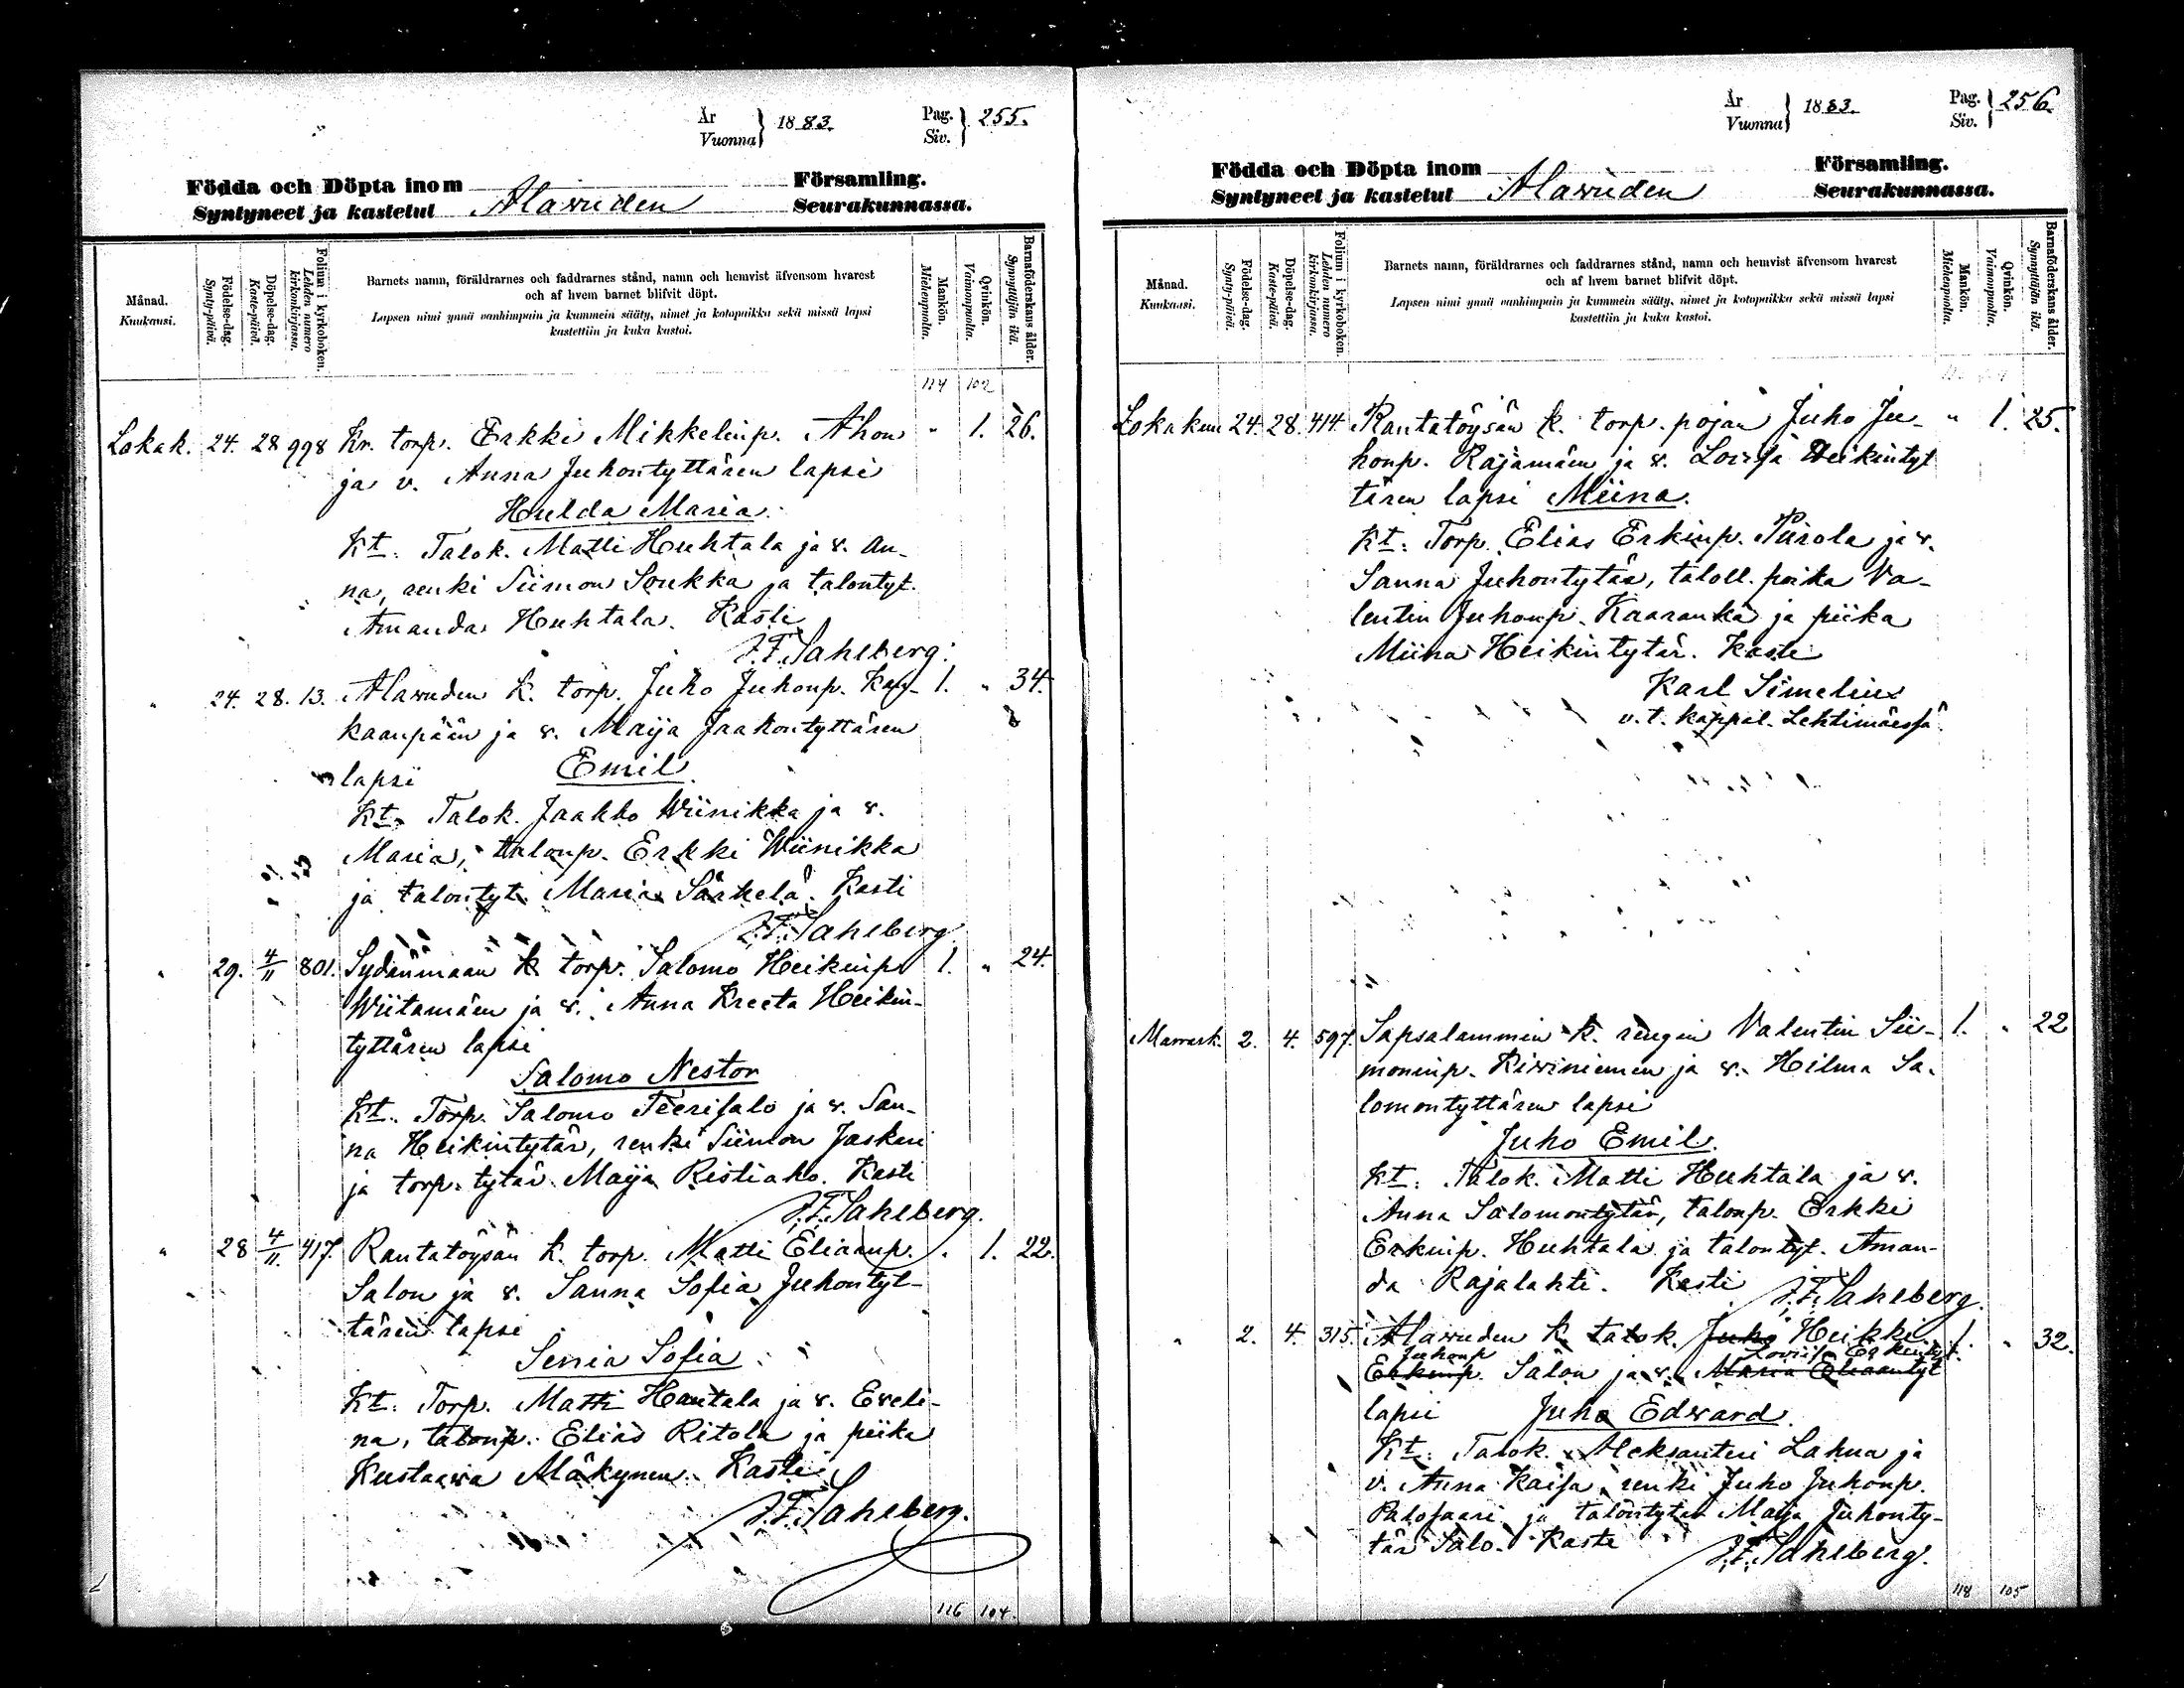 År
Vuonna } 1883.
Pag.
Siv. } 255.
Födda och Döpta inom Församling.
Syntyneet ja kastetut Alavuden Seurakunnassa.
Månad.
Kuukausi.
Födelse-dag.
Synty-päivä.
Döpelse-dag.
Kaste-päivä.
Folium i kyrkoboken.
Lehden numero
kirkonkirjassa.
Barnets namn, föräldrarnes och faddrarnes stånd, namn och hemvist äfvensom hvarest
och af hvem barnet blifvit döpt.
Lapsen nimi ynnä vanhimpain ja kummein sääty, nimet ja kotopaikka sekä missä lapsi
kastettiin ja kuka kastoi.
Mankön.
Miehenpuolta.
Qvinkön.
Vaimonpuolta.
Barnaföderskans ålder.
Synnyttäjän ikä.
114 102
Lokak. 24. 28 998 Kr. torp. Erkki Mikkelinp. Ahon " 1. 26.
ja v. Anna Juhontyttären lapsi
Hulda Maria.
Kt: Talok. Matti Huhtala ja v. An-
na, renki Siimon Soukka ja talontyt.
Amanda Huhtala. Kasti
J.F. Sahlberg.
" 24. 28. 13. Alavuden k. torp. Juho Juhonp. Kan- 1. " 34.
kaanpään ja v. Maija Jaakontyttären
lapsi Emil.
Kt. Talok. Jaakko Wiinikka ja v.
Maria, talonp. Erkki Wiinikka
ja talontyt. Maria Särkelä. Kasti
J.F. Sahlberg
" 29. 4/11 801. Sydänmaan k. torp. Salomo Heikinp. 1. " 24.
Wiitamäen ja v. Anna Kreeta Heikin-
tyttären lapsi
Salomo Nestor
Kt. Torp. Salomo Teerisalo ja v. San-
na Heikintytär, renki Siimon Jaskari
ja torp. tytär Maija Ristiaho. Kasti
J.F. Sahlberg.
" 28 4/11. 417. Rantatöysän k. torp. Matti Eliaanp. " 1. 22.
Salon ja v. Sanna Sofia Juhontyt-
tären lapsi
Senia Sofia
Kt: Torp. Matti Hautala ja v. Eveli-
na, talonp. Elias Ritola ja piika
Kustaava Mäkynen. Kasti
J.F. Sahlberg.
116 104.
År
Vuonna } 1883.
Pag.
Siv. } 256.
Födda och Döpta inom Församling.
Syntyneet ja kastetut Alavuden Seurakunnassa.
Månad.
Kuukausi.
Födelse-dag.
Synty-päivä.
Döpelse-dag.
Kaste-päivä.
Folium i kyrkoboken.
Lehden numero
kirkonkirjassa.
Barnets namn, föräldrarnes och faddrarnes stånd, namn och hemvist äfvensom hvarest
och af hvem barnet blifvit döpt.
Lapsen nimi ynnä vanhimpain ja kummein sääty, nimet ja kotopaikka sekä missä lapsi
kastettiin ja kuka kastoi.
Mankön.
Miehenpuolta.
Qvinkön.
Vaimonpuolta.
Barnaföderskans ålder.
Synnyttäjän ikä.
Lokakuu 24. 28. 414 Rantatöysän k. torp. pojan Juho Ju- " 1. 25.
honp. Rajamäen ja v. Lovisa Heikintyt
tären lapsi Miina.
Kt: Torp. Elias Erkinp. Piirola ja v.
Sanna Juhontytär, taloll. poika Va-
lentin Juhonp. Kaaranka ja piika
Miina Heikintytär. Kasti
Karl Simelius
v.t. kappal. Lehtimäessä.
Marrask. 2. 4. 597. Sapsalammin k. rengin Valentin Sii- 1. " 22
moninp. Kiviniemen ja v. Hilma Sa-
lomontyttären lapsi
Juho Emil.
Kt: Talok. Matti Huhtala ja v.
Anna Salomontytär, talonp. Erkki
Erkinp. Huhtala ja talontyt. Aman-
da Rajalahti. Kasti J.F. Sahlberg.
" 2. 4. 315. Alavuden k. talok. Juho Heikki 1. " 32.
Juhonp Lovisa Erkintyt.
Erkinp. Salon ja v. Maria Eliaantyt
lapsi Juho Edvard.
Kt: Talok. Aleksanteri Lahna ja
v. Anna Kaisa, renki Juho Juhonp.
Palosaari ja talontytär Maija Juhonty-
tär Salo. Kaste J.F. Sahlberg.
118 105